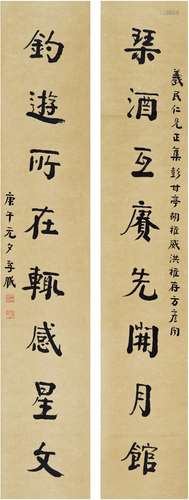 琴酒互賡先開月館
義民仁兄正集彭甘亭胡稚威洪稚存方彦聞
釣遊所在輒感星文
庚午元夕